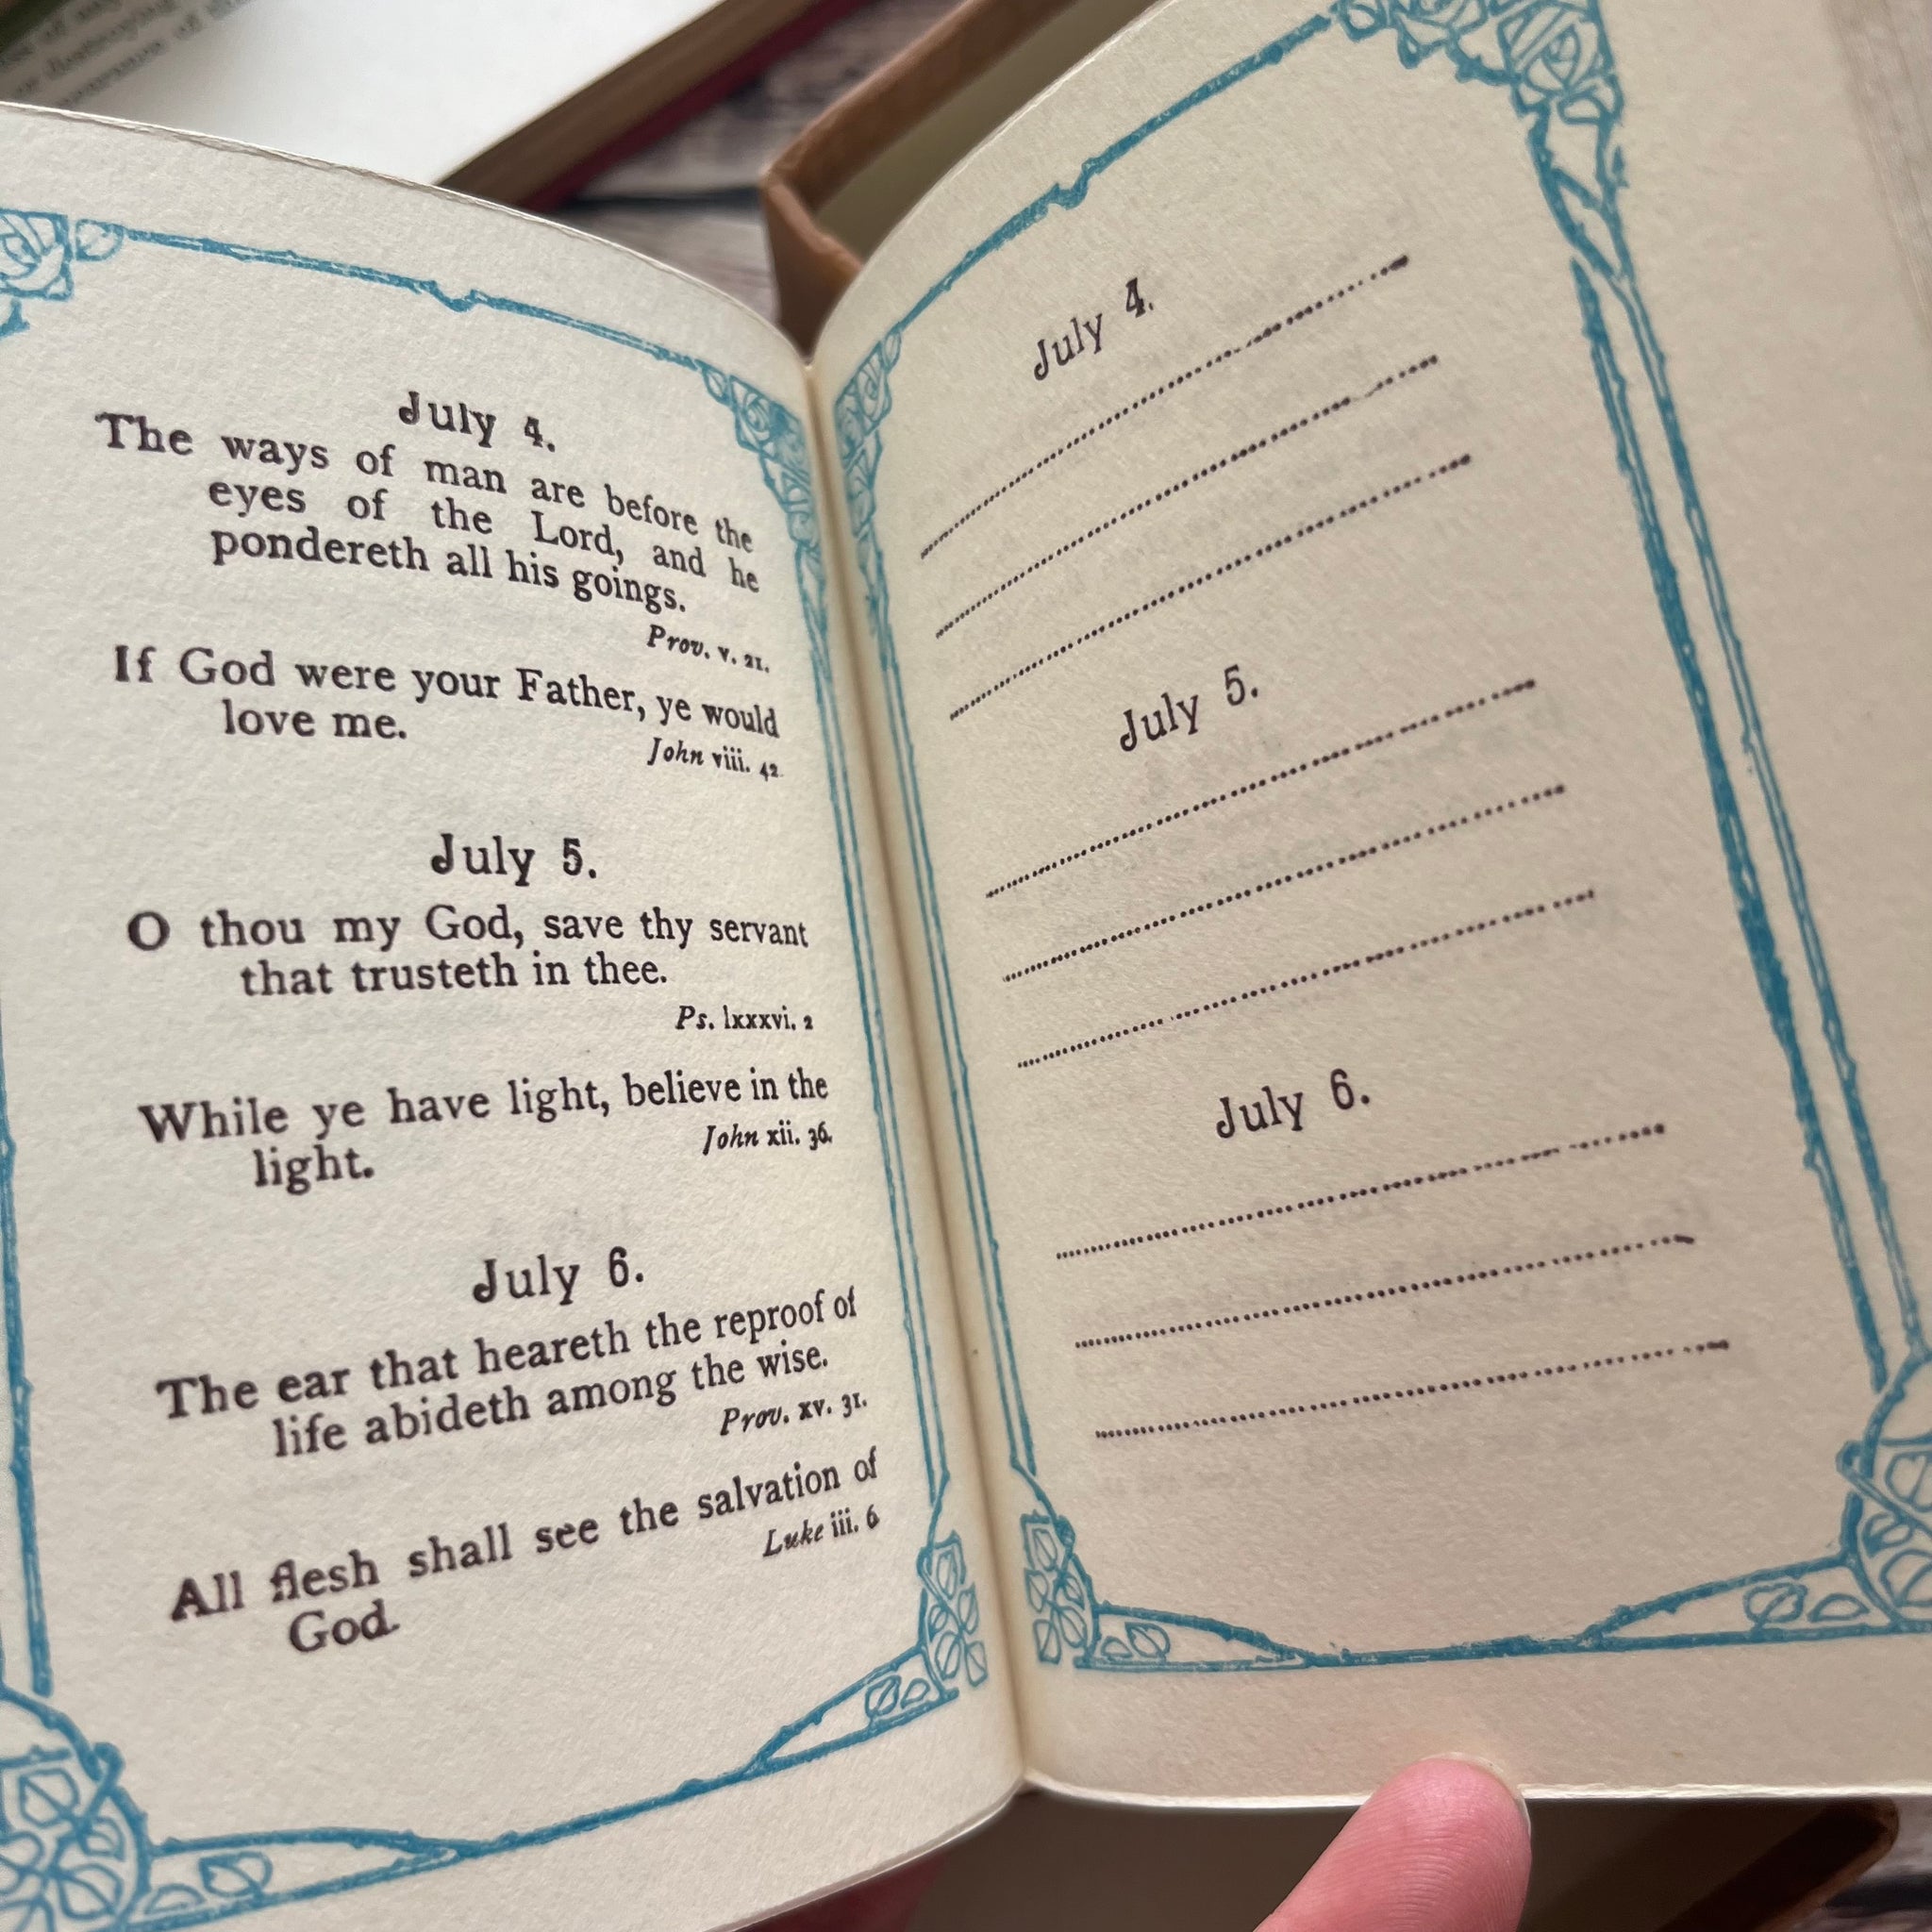 July 4.
The ways of man are before the
eyes of the Lord, and he
pondereth all his goings.
Prov. v. 21.
If God were your Father, ye would
love me.
John viii. 42
July 5.
O thou my God, save thy servant
that trusteth in thee.
Ps. lxxxvi. 2
While ye have light, believe in the
light.
John xii. 36.
July 6.
The ear that heareth the reproof of
life abideth among the wise.
Prov. xv. 31.
All flesh shall see the salvation of
God.
Luke iii. 6
July 4.
July 5.
July 6.